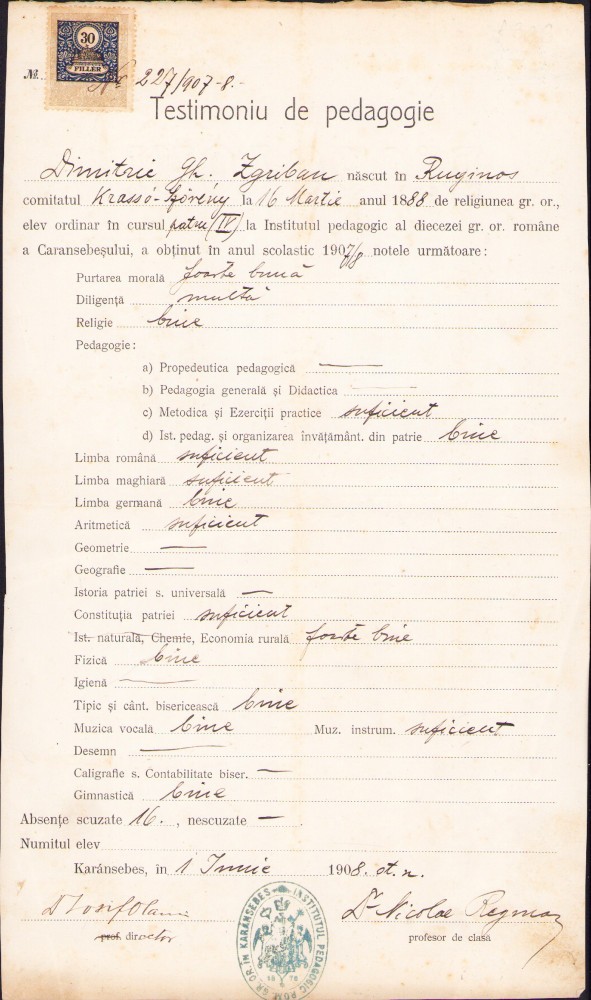 30
FILLÉR
№ 227/907-8.-
Testimoniu de pedagogie
Dimitrie Gh. Zgriban născut în Ruginos
comitatul Krassó-Szörény la 16 Martie anul 1888 de religiunea gr. or.,
elev ordinar în cursul patru (IV) la Institutul pedagogic al diecezei gr. or. române
a Caransebeșului, a obținut în anul scolastic 1907/8 notele următoare:
Purtarea morală foarte bună
Diligență multă
Religie bine
Pedagogie:
a) Propedeutica pedagogică —
b) Pedagogia generală și Didactica —
c) Metodica și Ezerciții practice suficient
d) Ist. pedag. și organizarea învățământ. din patrie bine
Limba română suficient
Limba maghiară suficient
Limba germană bine
Aritmetică suficient
Geometrie —
Geografie —
Istoria patriei s. universală —
Constituția patriei suficient
Ist. naturală, Chemie, Economia rurală foarte bine
Fizică bine
Igienă —
Tipic și cânt. bisericească bine
Muzica vocală bine Muz. instrum. suficient
Desemn —
Caligrafie s. Contabilitate biser. —
Gimnastică bine
Absențe scuzate 16., nescuzate —
Numitul elev
Karánsebes, în 1 Iunie 1908. st. n.
Dr Iosif Olariu Dr Nicolae Regman
prof. director profesor de clasă
INSTITUTUL PEDAGOGIC ROM. GR. OR. ÎN KARÁNSEBES
1876